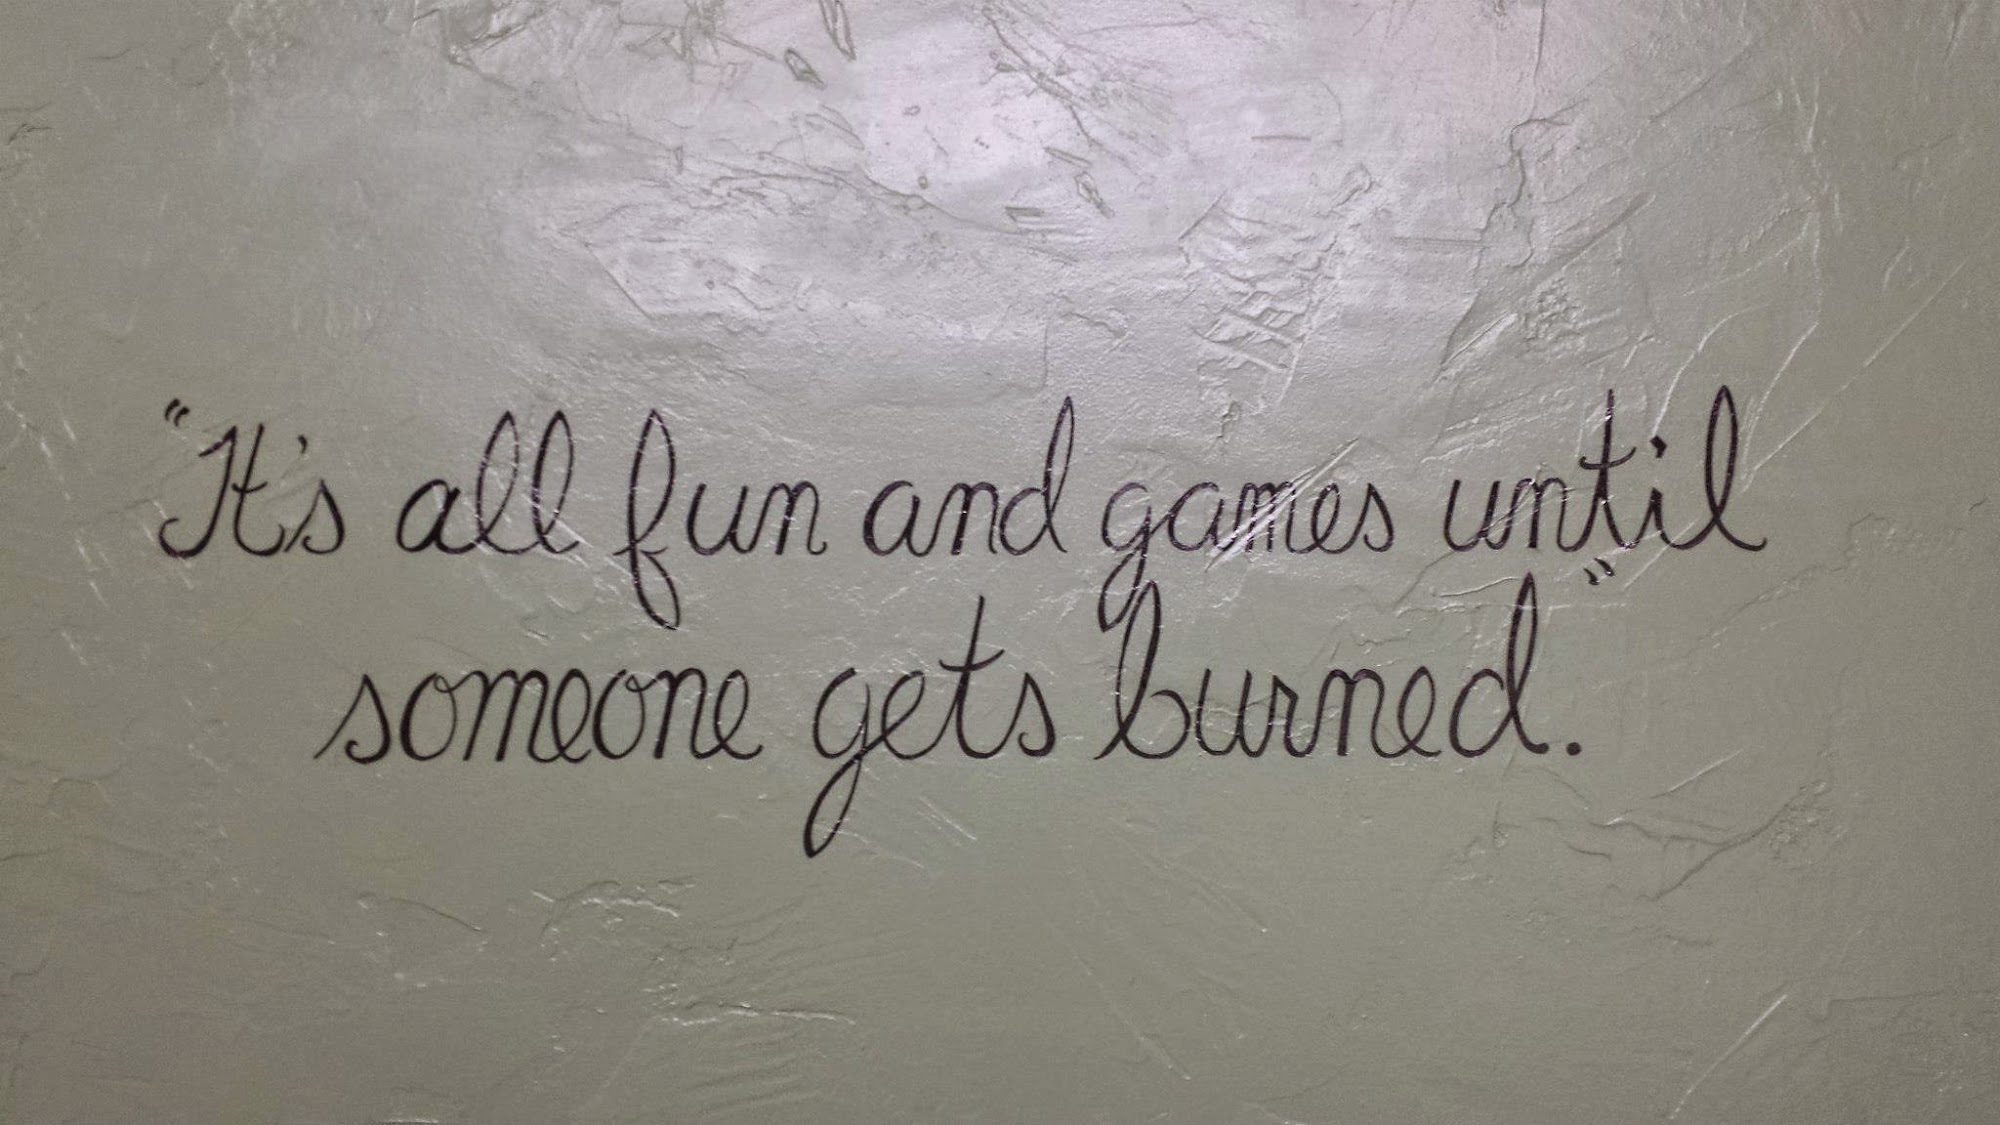 "It's all fun and games until
someone gets burned."